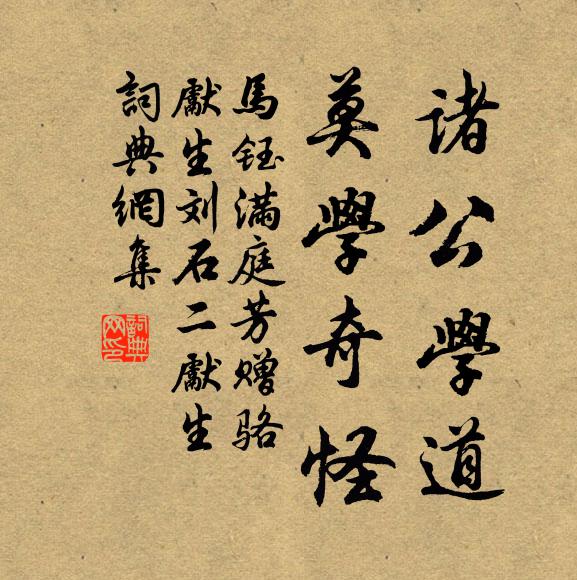 诸公學道
莫學奇怪
馬鈺满庭芳赠骆
獻生刘石二獻生
詞典網集
詞典
网印